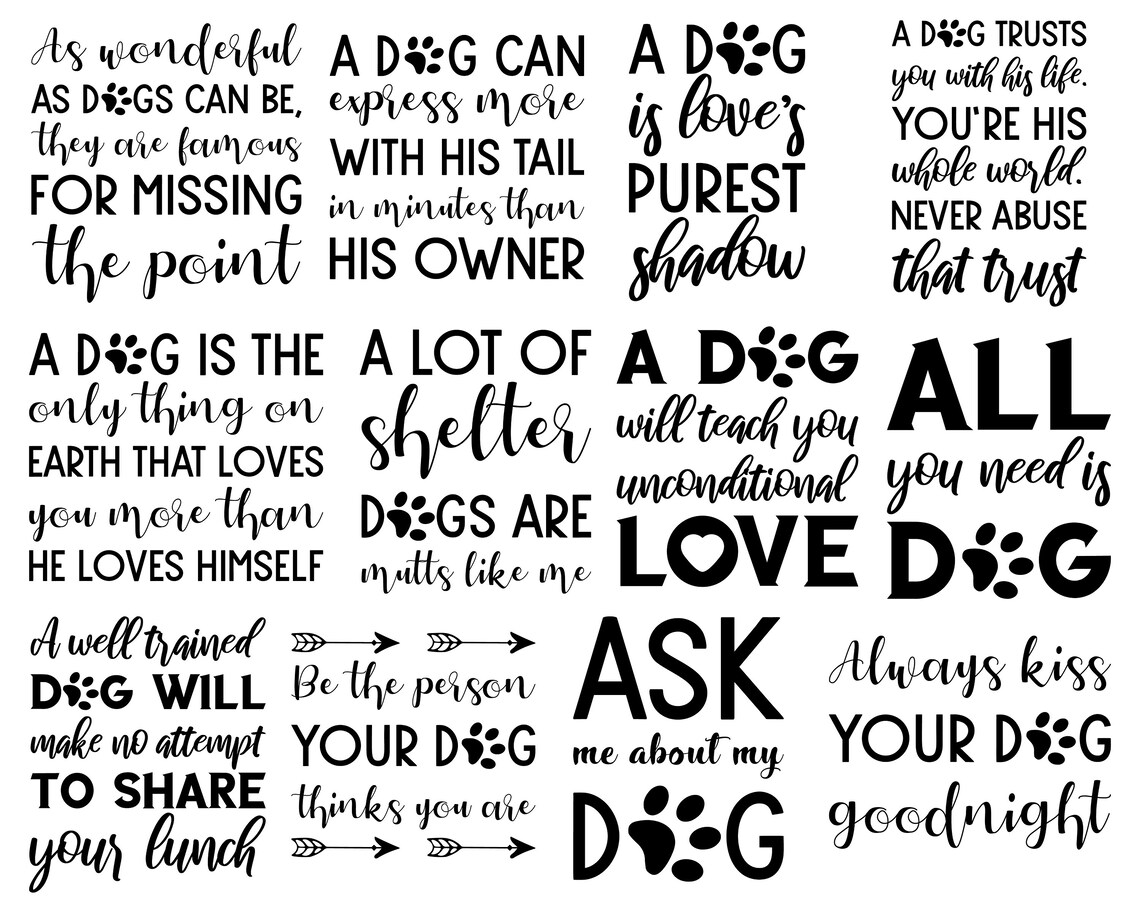 As wonderful
AS DOGS CAN BE,
they are famous
FOR MISSING
the point
A DOG CAN
express more
WITH HIS TAIL
in minutes than
HIS OWNER
A DOG
is love's
PUREST
shadow
A DOG TRUSTS
you with his life.
YOU'RE HIS
whole world.
NEVER ABUSE
that trust
A DOG IS THE
only thing on
EARTH THAT LOVES
you more than
HE LOVES HIMSELF
A LOT OF
shelter
DOGS ARE
mutts like me
A DOG
will teach you
unconditional
LOVE
ALL
you need is
DOG
A well trained
DOG WILL
make no attempt
TO SHARE
your lunch
Be the person
YOUR DOG
thinks you are
ASK
me about my
DOG
Always kiss
YOUR DOG
goodnight